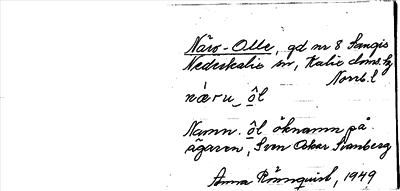 Näro-Olle, gd nr 8 Sangis
Nederkalix sn, Kalix doms. lg
Norrb. l
næru_ôl
Namn. ôl öknamn på
ägaren, Sven Oskar Svanberg
Anna Rönnquist, 1949